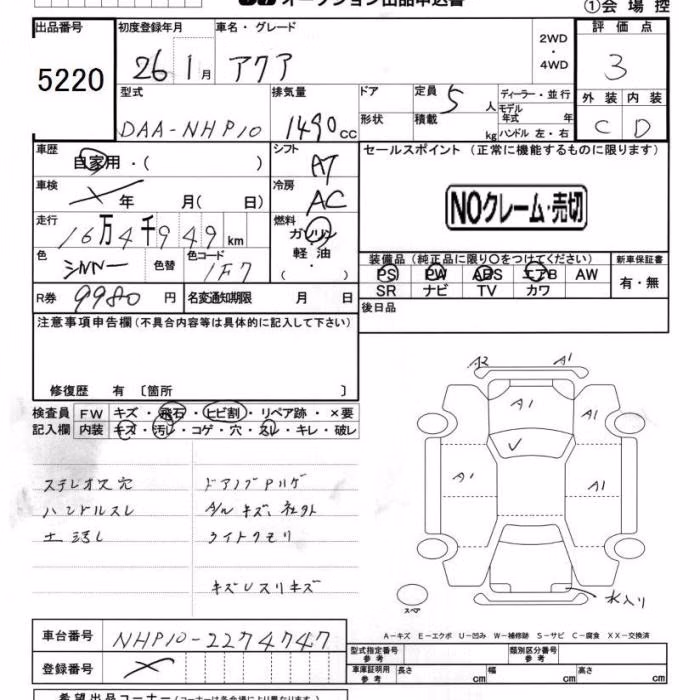 オークション出品申込書
①会場控
出品番号 5220
初度登録年月 26 1月
車名・グレード アクア
2WD・4WD
評価点 3
外装 内装
C D
型式 DAA-NHP10
排気量 1490cc
ドア
形状
定員 5人
積載 kg
ディーラー・並行
モデル年式 年
ハンドル 左・右
車歴 自家用・( )
シフト AT
車検 年 月( 日)
冷房 AC
走行 16万4千949km
燃料 ガソリン・軽油・( )
色 シルバー
色替
色コード 1F7
R券 9980円
名変通知期限 月 日
セールスポイント(正常に機能するものに限ります)
NOクレーム・売切
装備品(純正品に限り○をつけてください)
新車保証書
PS PW ABS エアB AW
SR ナビ TV カワ
有・無
後日品
注意事項申告欄(不具合内容等は具体的に記入して下さい)
修復歴 有 〔箇所 〕
検査員 FW キズ・飛石・ヒビ割・リペア跡・×要
記入欄 内装 キズ・汚レ・コゲ・穴・スレ・キレ・破レ
ステレオス穴
ハンドルスレ
ライトクモリ
キズUスリキズ
A2 A1
A1 A1
A1 A1
水入り
スペア
A-キズ E-エクボ U-凹み W-補修跡 S-サビ C-腐食 XX-交換済
車台番号 NHP10-2274747
登録番号
型式指定番号 参考
類別区分番号 参考
車庫証明用 参考 長さ cm 幅 cm 高さ cm
希望出品コーナー